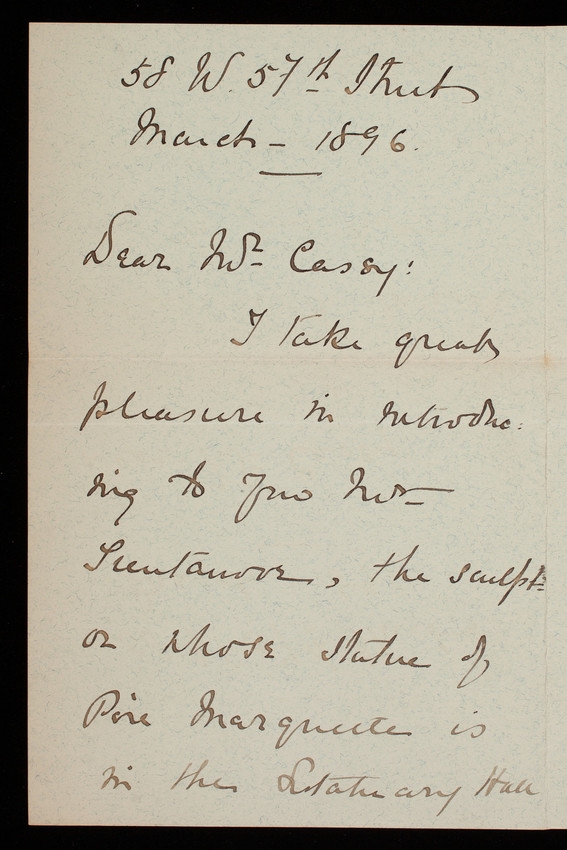 58 W. 57th Street
March – 1896.
Dear Mr Casey:
I take great
pleasure in introduc:
ing to you Mr
Trentanove, the sculpt:
or whose statue of
Père Marquette is
in the Statuary Hall